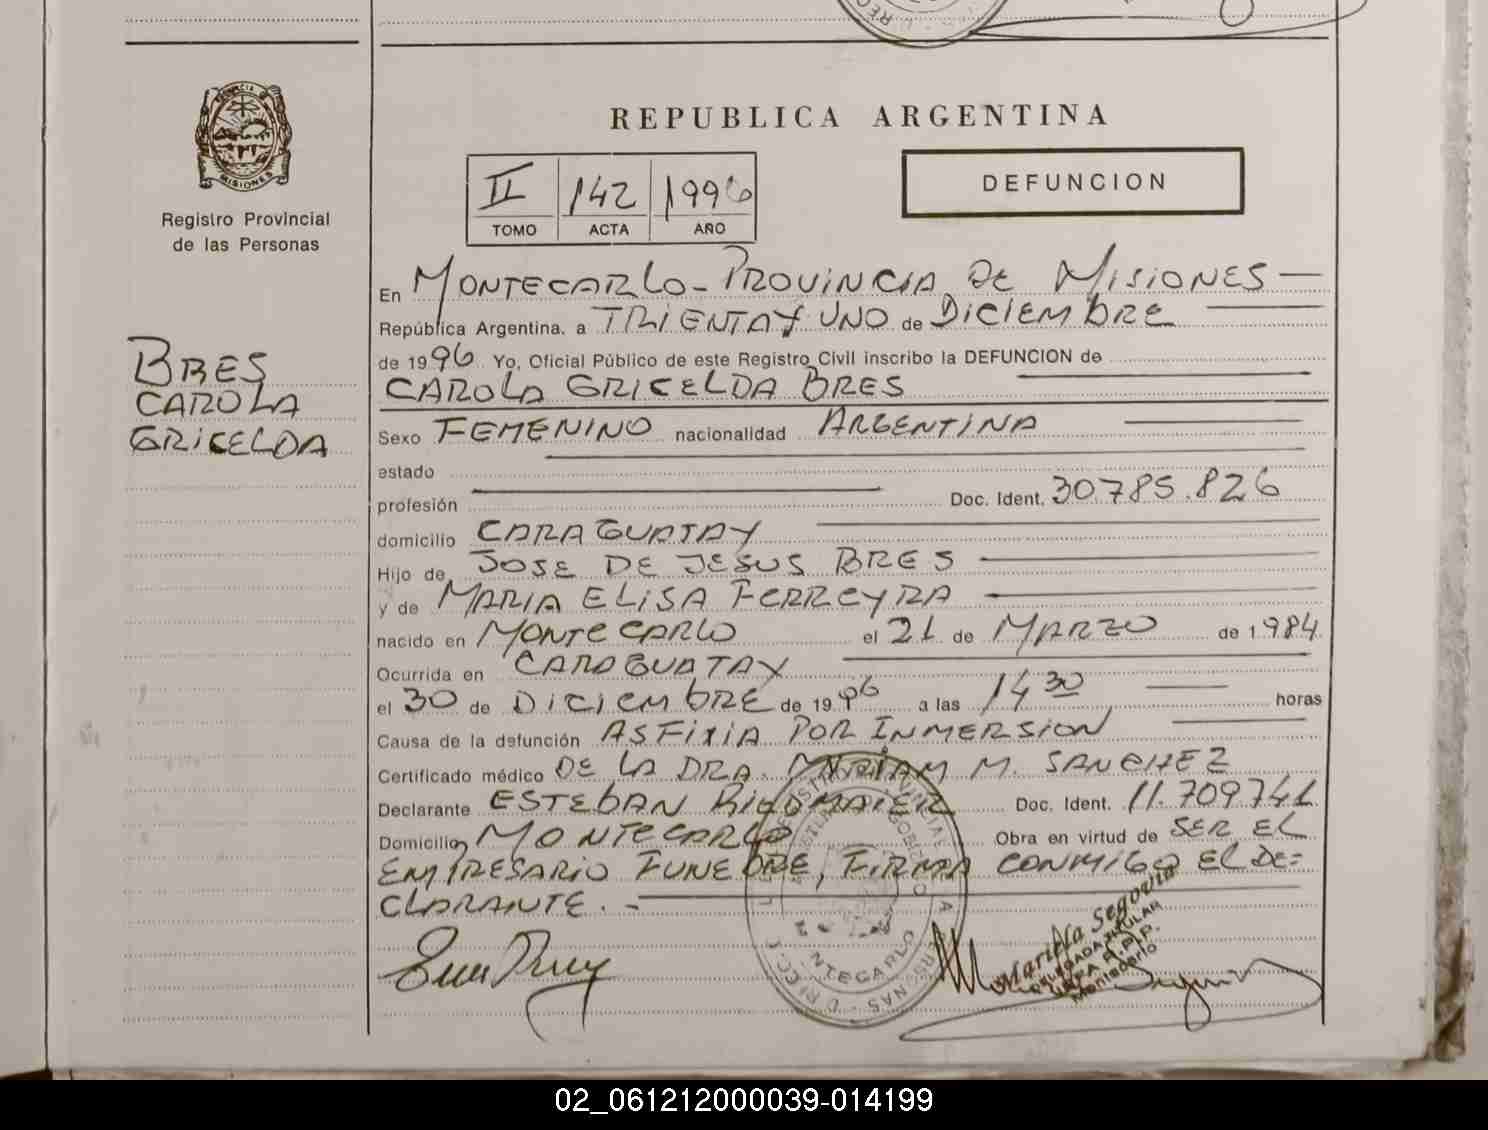 PROVINCIA DE
MISIONES
Registro Provincial
de las Personas
BRES
CAROLA
GRICELDA
REPUBLICA ARGENTINA
II 142 1996
TOMO ACTA AÑO
DEFUNCION
En MONTECARLO - PROVINCIA DE MISIONES
República Argentina, a TREINTA Y UNO de DICIEMBRE
de 1996 Yo, Oficial Público de este Registro Civil inscribo la DEFUNCION de
CAROLA GRICELDA BRES
Sexo FEMENINO nacionalidad ARGENTINA
estado
profesión Doc. Ident. 30.785.826
domicilio CARAGUATAY
Hijo de JOSE DE JESUS BRES
y de MARIA ELISA FERREYRA
nacido en MONTECARLO el 21 de MARZO de 1984
Ocurrida en CARAGUATAY
el 30 de DICIEMBRE de 1996 a las 14 30 horas
Causa de la defunción ASFIXIA POR INMERSION
Certificado médico DE LA DRA. MYRIAM M. SANCHEZ
Declarante ESTEBAN Doc. Ident. 11.709.741
Domicilio MONTECARLO Obra en virtud de SER EL
EMPRESARIO FUNEBRE, FIRMA CONMIGO EL DE=
CLARANTE. -
Mariela Segovia
DELEGADA TITULAR
R.P.P.
Montecarlo
02_061212000039-014199